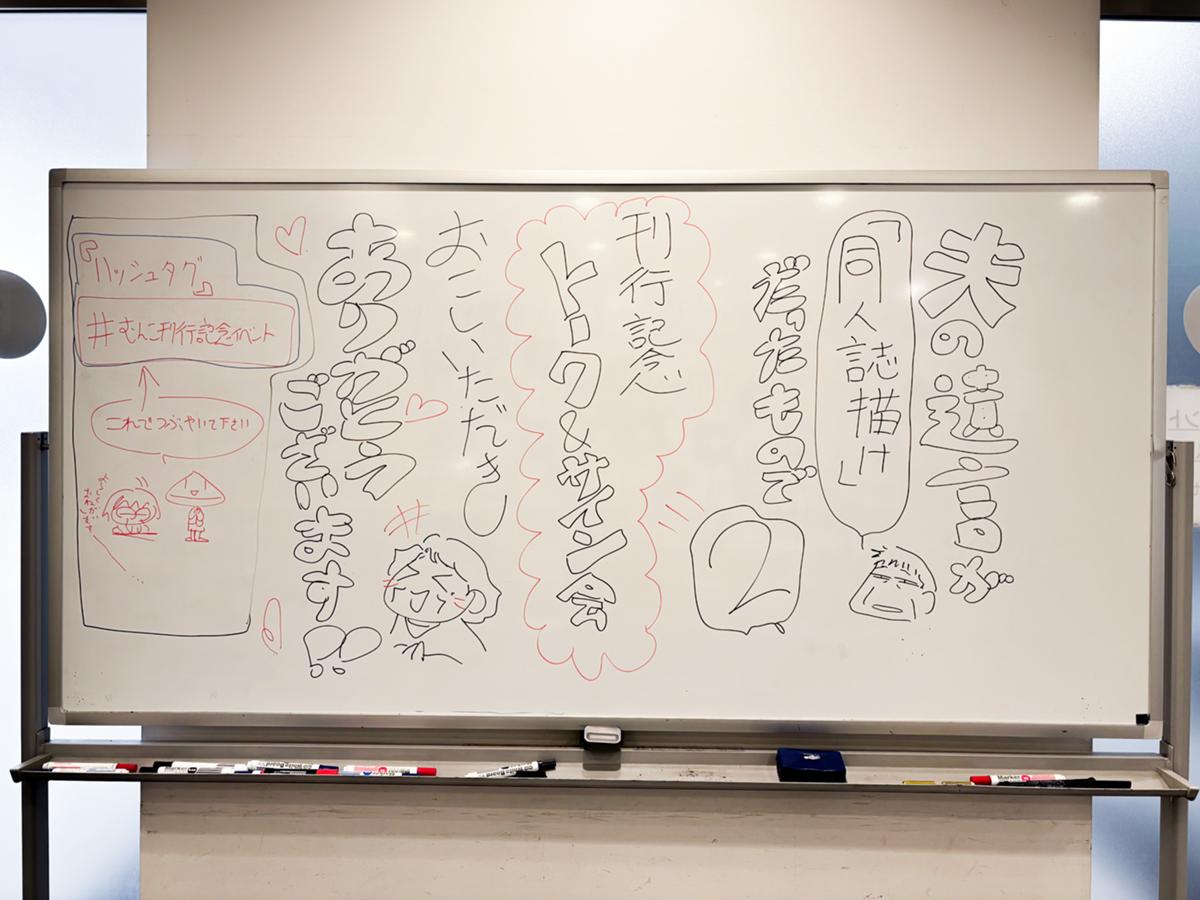 夫の遺言が
「同人誌描け」
だったもので
2
刊行記念
トーク&サイン会
おこしいただき
ありがとう
ございます!!
『ハッシュタグ』
#むんこ刊行記念イベント
これでつぶやいて下さい
よろしくおねがいします